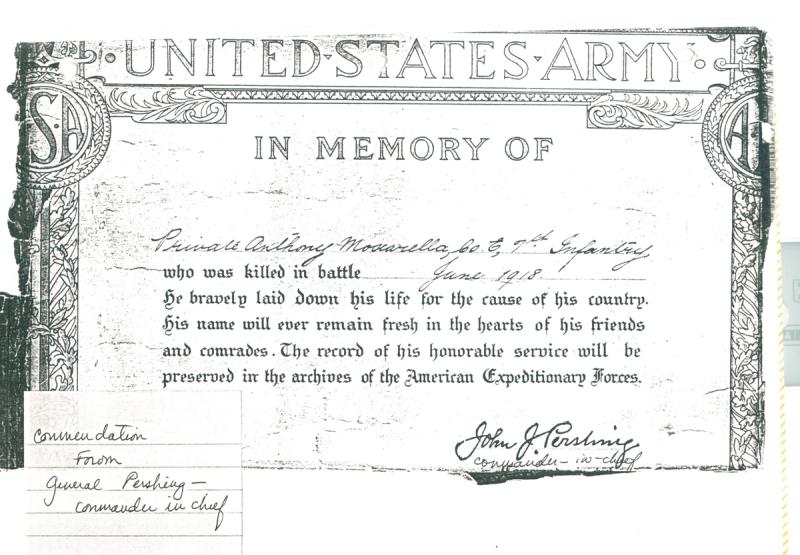 UNITED·STATES·ARMY
S·A
A
IN MEMORY OF
Private Anthony Moxarella, Co. E, 7th Infantry
who was killed in battle June 1918
He bravely laid down his life for the cause of his country.
His name will ever remain fresh in the hearts of his friends
and comrades. The record of his honorable service will be
preserved in the archives of the American Expeditionary Forces.
John J Pershing
commander-in-chief
commendation
From
General Pershing—
commander in chief